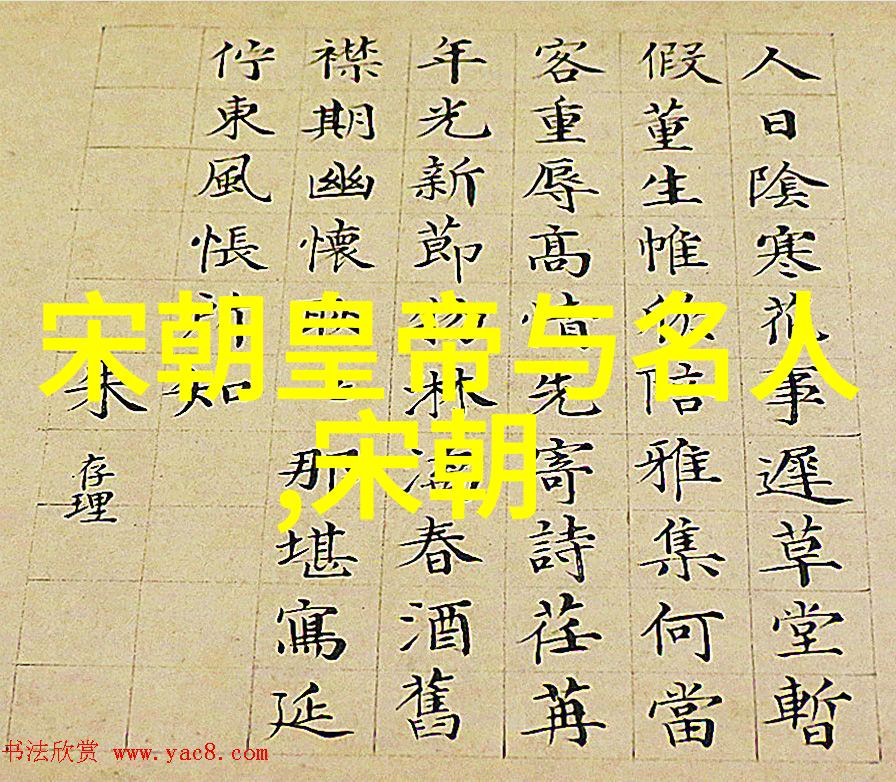 人日陰寒花事遲草堂暫
假董生帷陪雅集何當
客重辱高情先寄詩荏苒
年光新節物淋漓春酒舊
襟期幽懷那堪寫延
佇東風悵知
未
存理
宋朝皇帝与名人
,宋朝
书法欣赏 www.yac8.com